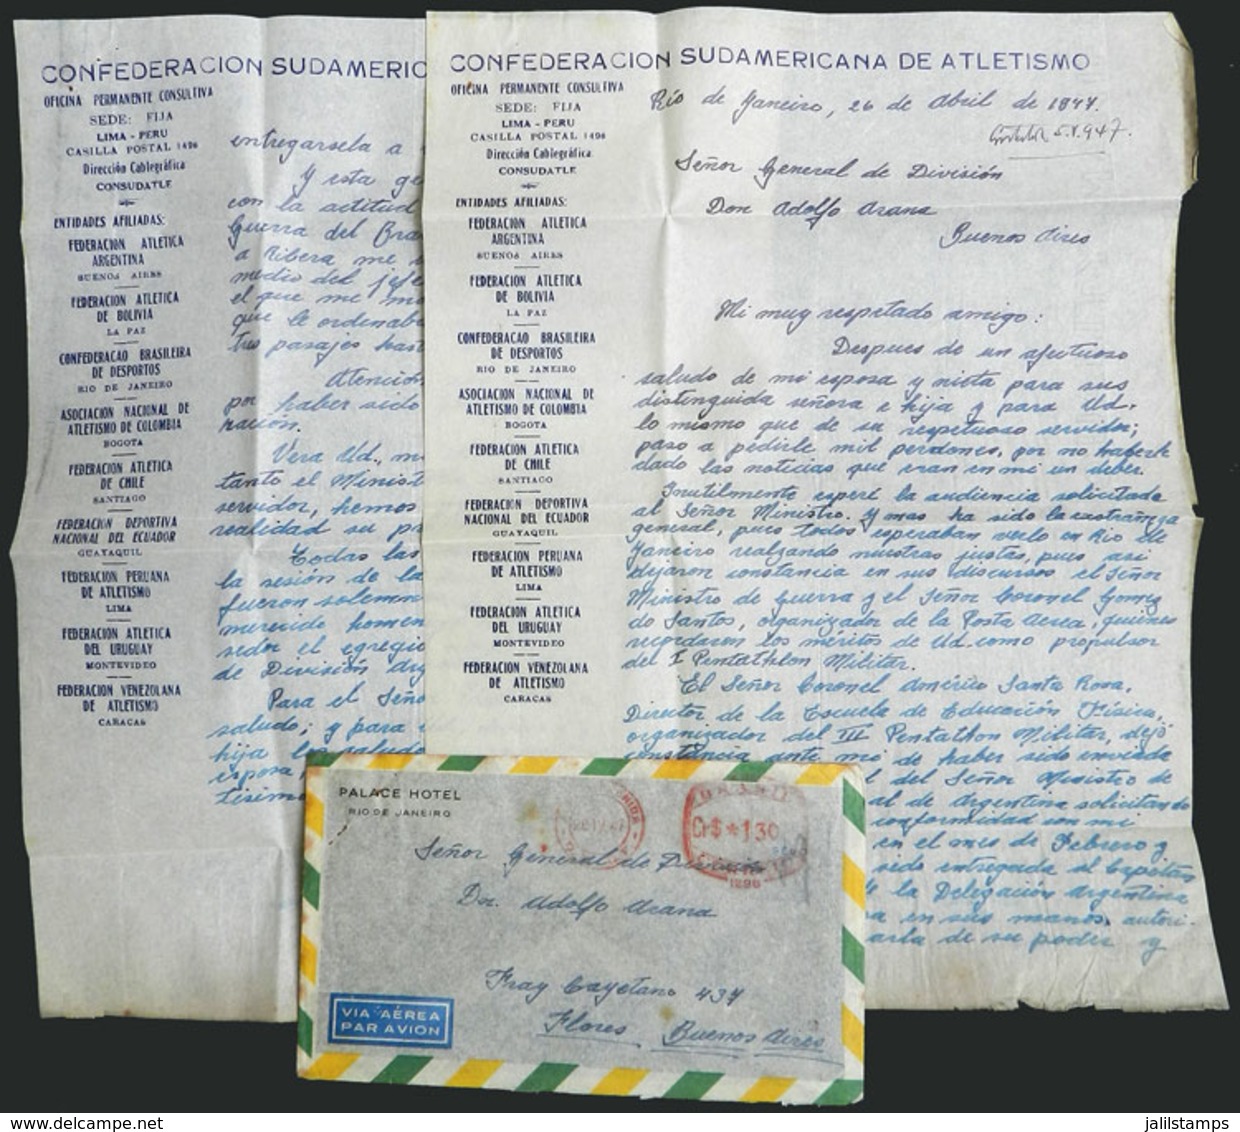 CONFEDERACION SUDAMERIC
OFICINA PERMANENTE CONSULTIVA
SEDE: FIJA
LIMA - PERU
CASILLA POSTAL 1496
Dirección Cablegráfica
CONSUDATLE
ENTIDADES AFILIADAS:
FEDERACION ATLETICA
ARGENTINA
BUENOS AIRES
FEDERACION ATLETICA
DE BOLIVIA
LA PAZ
CONFEDERACAO BRASILEIRA
DE DESPORTOS
RIO DE JANEIRO
ASOCIACION NACIONAL DE
ATLETISMO DE COLOMBIA
BOGOTA
FEDERACION ATLETICA
DE CHILE
SANTIAGO
FEDERACION DEPORTIVA
NACIONAL DEL ECUADOR
GUAYAQUIL
FEDERACION PERUANA
DE ATLETISMO
LIMA
FEDERACION ATLETICA
DEL URUGUAY
MONTEVIDEO
FEDERACION VENEZOLANA
DE ATLETISMO
CARACAS
entregarsela a
Y esta ge
con la actitud
Guerra del Bra
a Ribera me
medio del jefe
el que me ma
que le ordenab
tres pasajes hast
Atención
por haber sido
ración.
Vera Ud., m
tanto el Minist
servidor, hemos
realidad su pr
Todas las
la sesión de la
fueron solemn
merecido homen
sedor el egregio
de División Arg
Para el Seño
saludo; y para
hija los salud
esposa
tisimo
CONFEDERACION SUDAMERICANA DE ATLETISMO
OFICINA PERMANENTE CONSULTIVA
SEDE: FIJA
LIMA - PERU
CASILLA POSTAL 1496
Dirección Cablegráfica
CONSUDATLE
ENTIDADES AFILIADAS:
FEDERACION ATLETICA
ARGENTINA
BUENOS AIRES
FEDERACION ATLETICA
DE BOLIVIA
LA PAZ
CONFEDERACAO BRASILEIRA
DE DESPORTOS
RIO DE JANEIRO
ASOCIACION NACIONAL DE
ATLETISMO DE COLOMBIA
BOGOTA
FEDERACION ATLETICA
DE CHILE
SANTIAGO
FEDERACION DEPORTIVA
NACIONAL DEL ECUADOR
GUAYAQUIL
FEDERACION PERUANA
DE ATLETISMO
LIMA
FEDERACION ATLETICA
DEL URUGUAY
MONTEVIDEO
FEDERACION VENEZOLANA
DE ATLETISMO
CARACAS
Río de Janeiro, 26 de Abril de 1947.
5.V.947.
Señor General de División
Don Adolfo Arana
Buenos Aires
Mi muy respetado amigo:
Despues de un afectuoso
saludo de mi esposa y nieta para sus
distinguida señora e hija y para Ud.
lo mismo que de su respetuoso servidor;
paso a pedirle mil perdones, por no haberle
dado las noticias que eran en mi un deber.
Inutilmente esperé la audiencia solicitada
al Señor Ministro. Y mas ha sido la extrañeza
general, pues todos esperaban verlo en Río de
Janeiro realzando nuestras justas, pues así
dejaron constancia en sus discursos el Señor
Ministro de Guerra y el Señor Coronel Gomez
do Santos, organizador de la Posta Aerea, quienes
recordaron los méritos de Ud. como propulsor
del I Pentathlon Militar.
El Señor Coronel Américo Santa Rosa,
Director de la Escuela de Educación Física,
organizador del III Pentathlon Militar, dejó
constancia ante mi de haber sido enviada
l del Señor Ministro de
al de Argentina solicitando
conformidad con mi
en el mes de Febrero y
sido entregada al Capitán
de la Delegación Argentina
a en sus manos, autori-
arla de su poder y
PALACE HOTEL
RIO DE JANEIRO
BRASIL
Cr$ *130
1296
Señor General de División
Dn. Adolfo Arana
Fray Cayetano 437
Flores Buenos Aires
VIA AÉREA
PAR AVION
jalilstamps